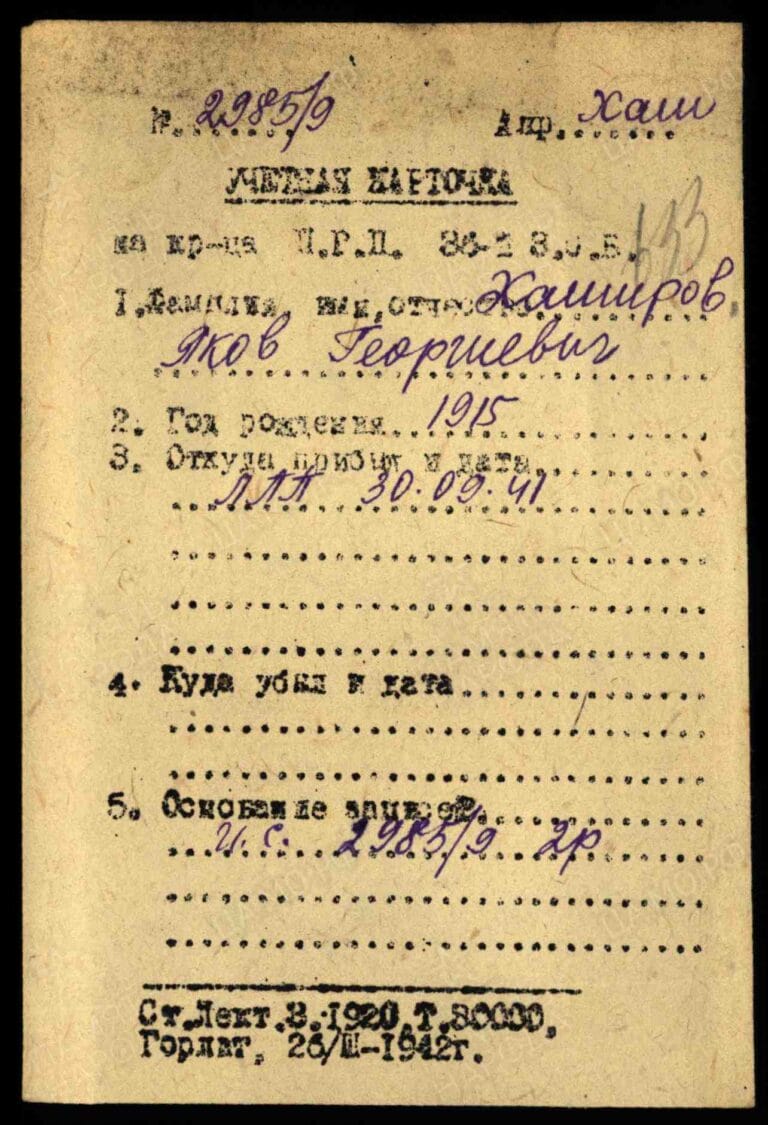 № 2985/9 Алф. Хаш
УЧЕТНАЯ КАРТОЧКА
на кр-ца П.Р.П. 36-й З.С.Б.
633
1. Фамилия, имя, отчество Хаширов
Яков Георгиевич
2. Год рождения 1915
3. Откуда прибыл и дата
ЛПП 30.09.41
4. Куда убыл и дата
5. Основание записей
и.с. 2985/9 2р
Ст.Лект.З.-1920.Т.30000,
Горлит, 26/III-1942г.